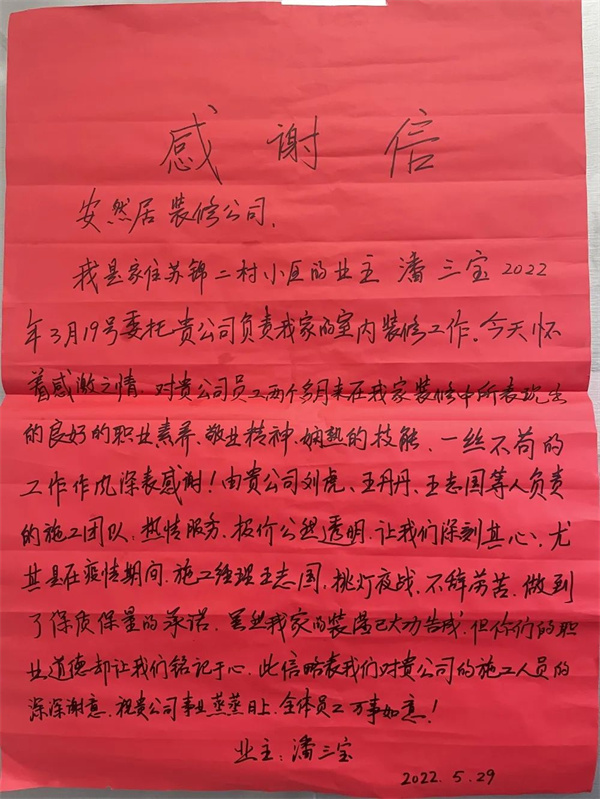 感谢信
安然居装修公司、
我是家住苏锦二村小区的业主 潘三宝 2022
年3月19号委托贵公司负责我家的室内装修工作。今天怀
着感激之情、对贵公司员工两个多月来在我家装修中所表现出
的良好的职业素养、敬业精神、娴熟的技能、一丝不苟的
工作作风深表感谢!由贵公司刘虎、王丹丹、王志国等人负责
的施工团队、热情服务、报价公然透明、让我们深刻其心、尤
其是在疫情期间、施工经理王志国、挑灯夜战、不辞劳苦、做到
了保质保量的承诺、虽然我家的装潢已大功告成、但你们的职
业道德却让我们铭记于心、此信略表我们对贵公司的施工人员的
深深谢意、祝贵公司事业蒸蒸日上、全体员工万事如意!
业主:潘三宝
2022.5.29